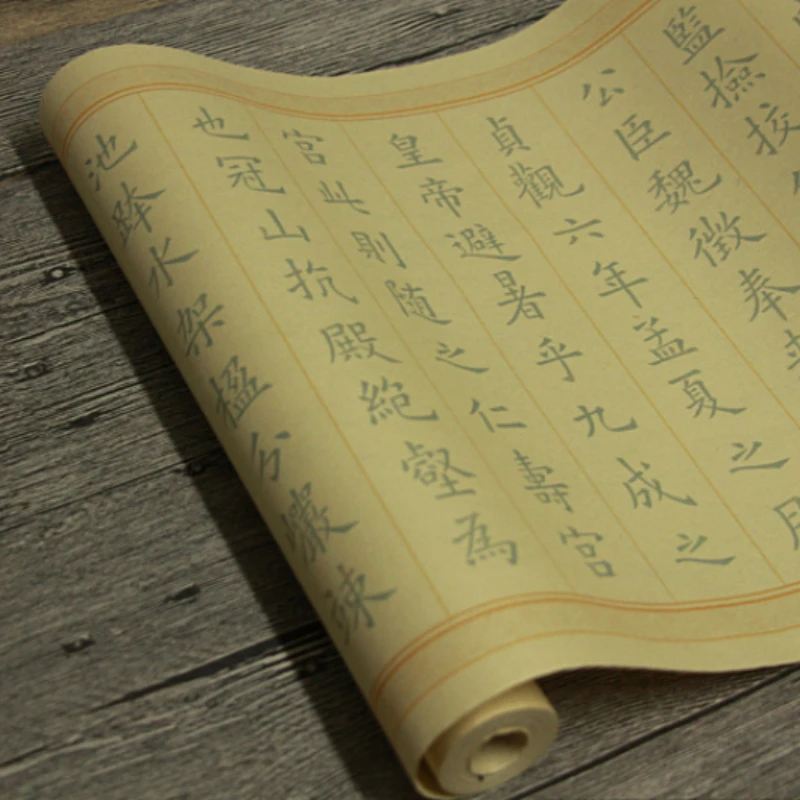 監撿挍
公臣魏徵奉
貞觀六年孟夏之月
皇帝避暑乎九成之
宮此則隨之仁壽宮
也冠山抗殿絶壑為
池跨水架楹分巖竦